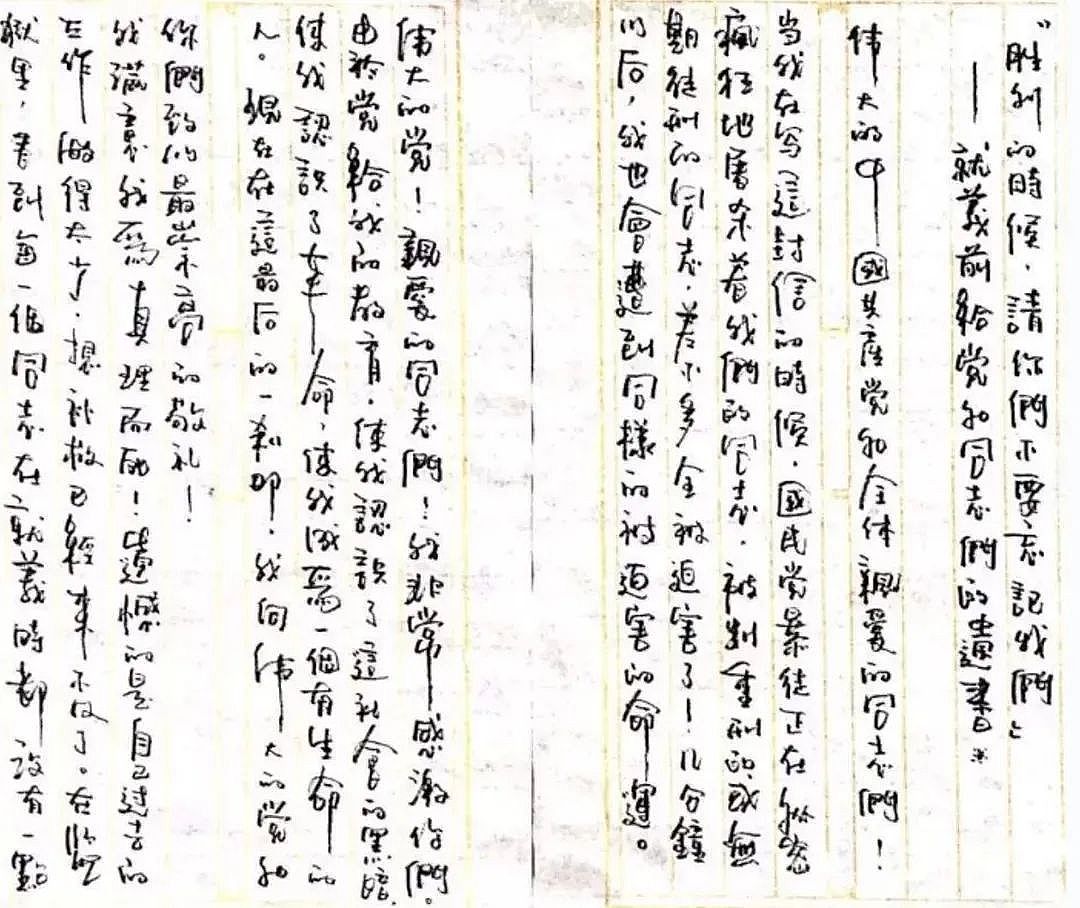 “胜利的時候，請你們不要忘記我們”
——就義前給党和同志們的遺書*
伟大的中國共產党和全体親爱的同志們！
当我在写這封信的時候，國民党暴徒正在秘密
瘋狂地屠杀着我們的同志，被判重刑的或無
期徒刑的同志，差不多全被迫害了！几分鐘
以后，我也會遭到同樣的被迫害的命運。
偉大的党！親愛的同志們！我非常感激你們。
由於党給我的教育，使我認識了這社會的黑暗，
使我認識了革命，使我成爲一個有生命的
人。現在在這最后的一刹那，我向偉大的党和
你們致以最崇高的敬礼！
我滿意我爲真理而死！遺憾的是自己过去的
工作做得太少，想补救已經来不及了。在監
獄里，看到每一個同志在就義時都沒有一點